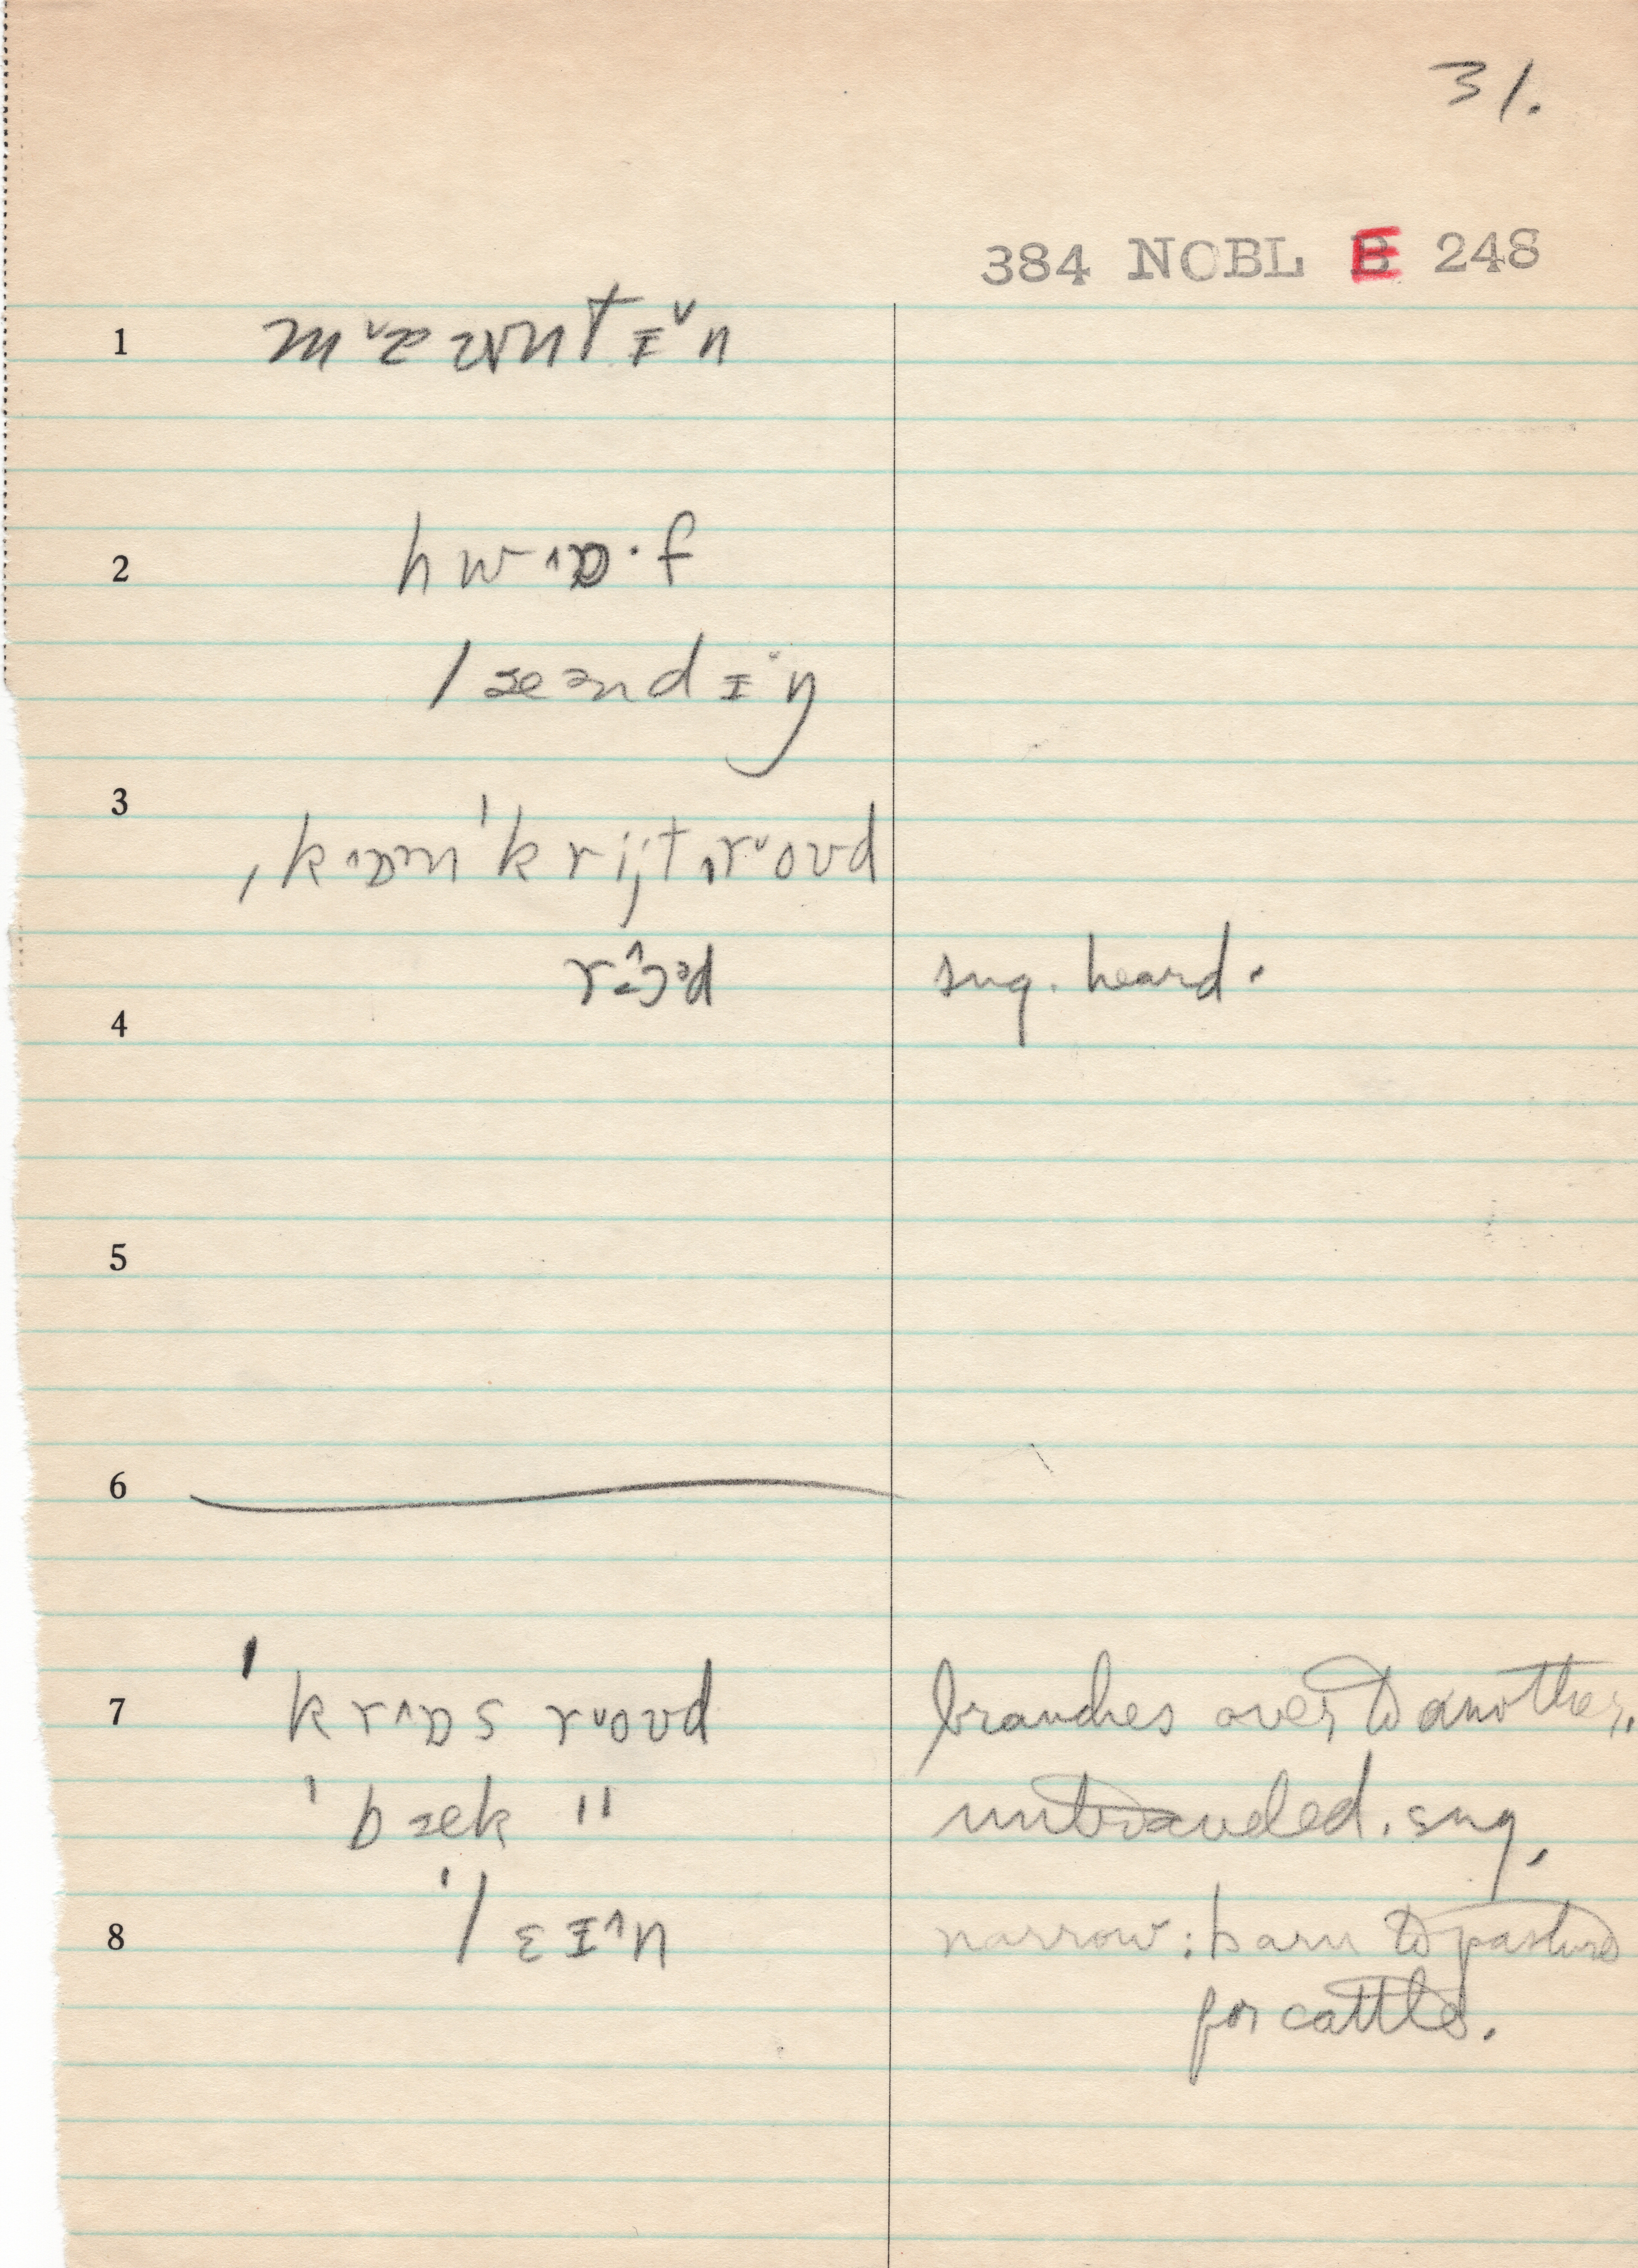 31.
384 NOBL E 248
1 mᵛæʊntɪᵛn
2 hw^ɒ·f
læəndɪ˙ŋ
3 ˌk^ɒnˈkrijt ˌrᵛoʊd
r ɔ^ᵊd sug. heard.
4
5
6
7 ˈkr^ɒs rᵛoʊd branches over to another.
ˈbæk " unbranded. sug.
8 ˈlɛɪ^n narrow: barn to pasture
for cattle.